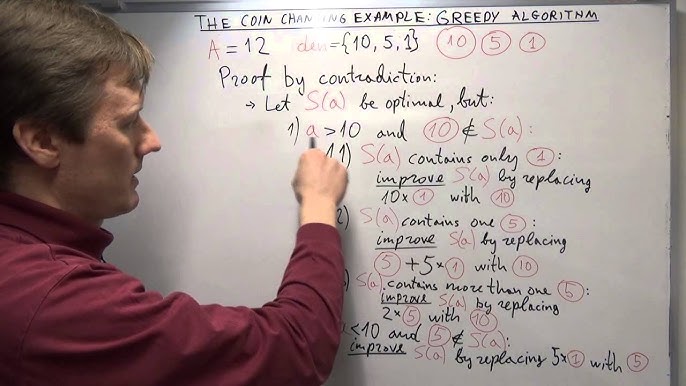 THE COIN CHANGING EXAMPLE: GREEDY ALGORITHM
A = 12 den = {10, 5, 1} 10 5 1
Proof by contradiction:
→ Let S(a) be optimal, but:
1) a > 10 and 10 ∉ S(a):
1) S(a) contains only 1:
improve S(a) by replacing
10× 1 with 10
2) S(a) contains one 5:
improve S(a) by replacing
5 + 5× 1 with 10
S(a) contains more than one 5:
improve S(a) by replacing
2× 5 with 10
<10 and 5 ∉ S(a):
improve S(a) by replacing 5×1 with 5